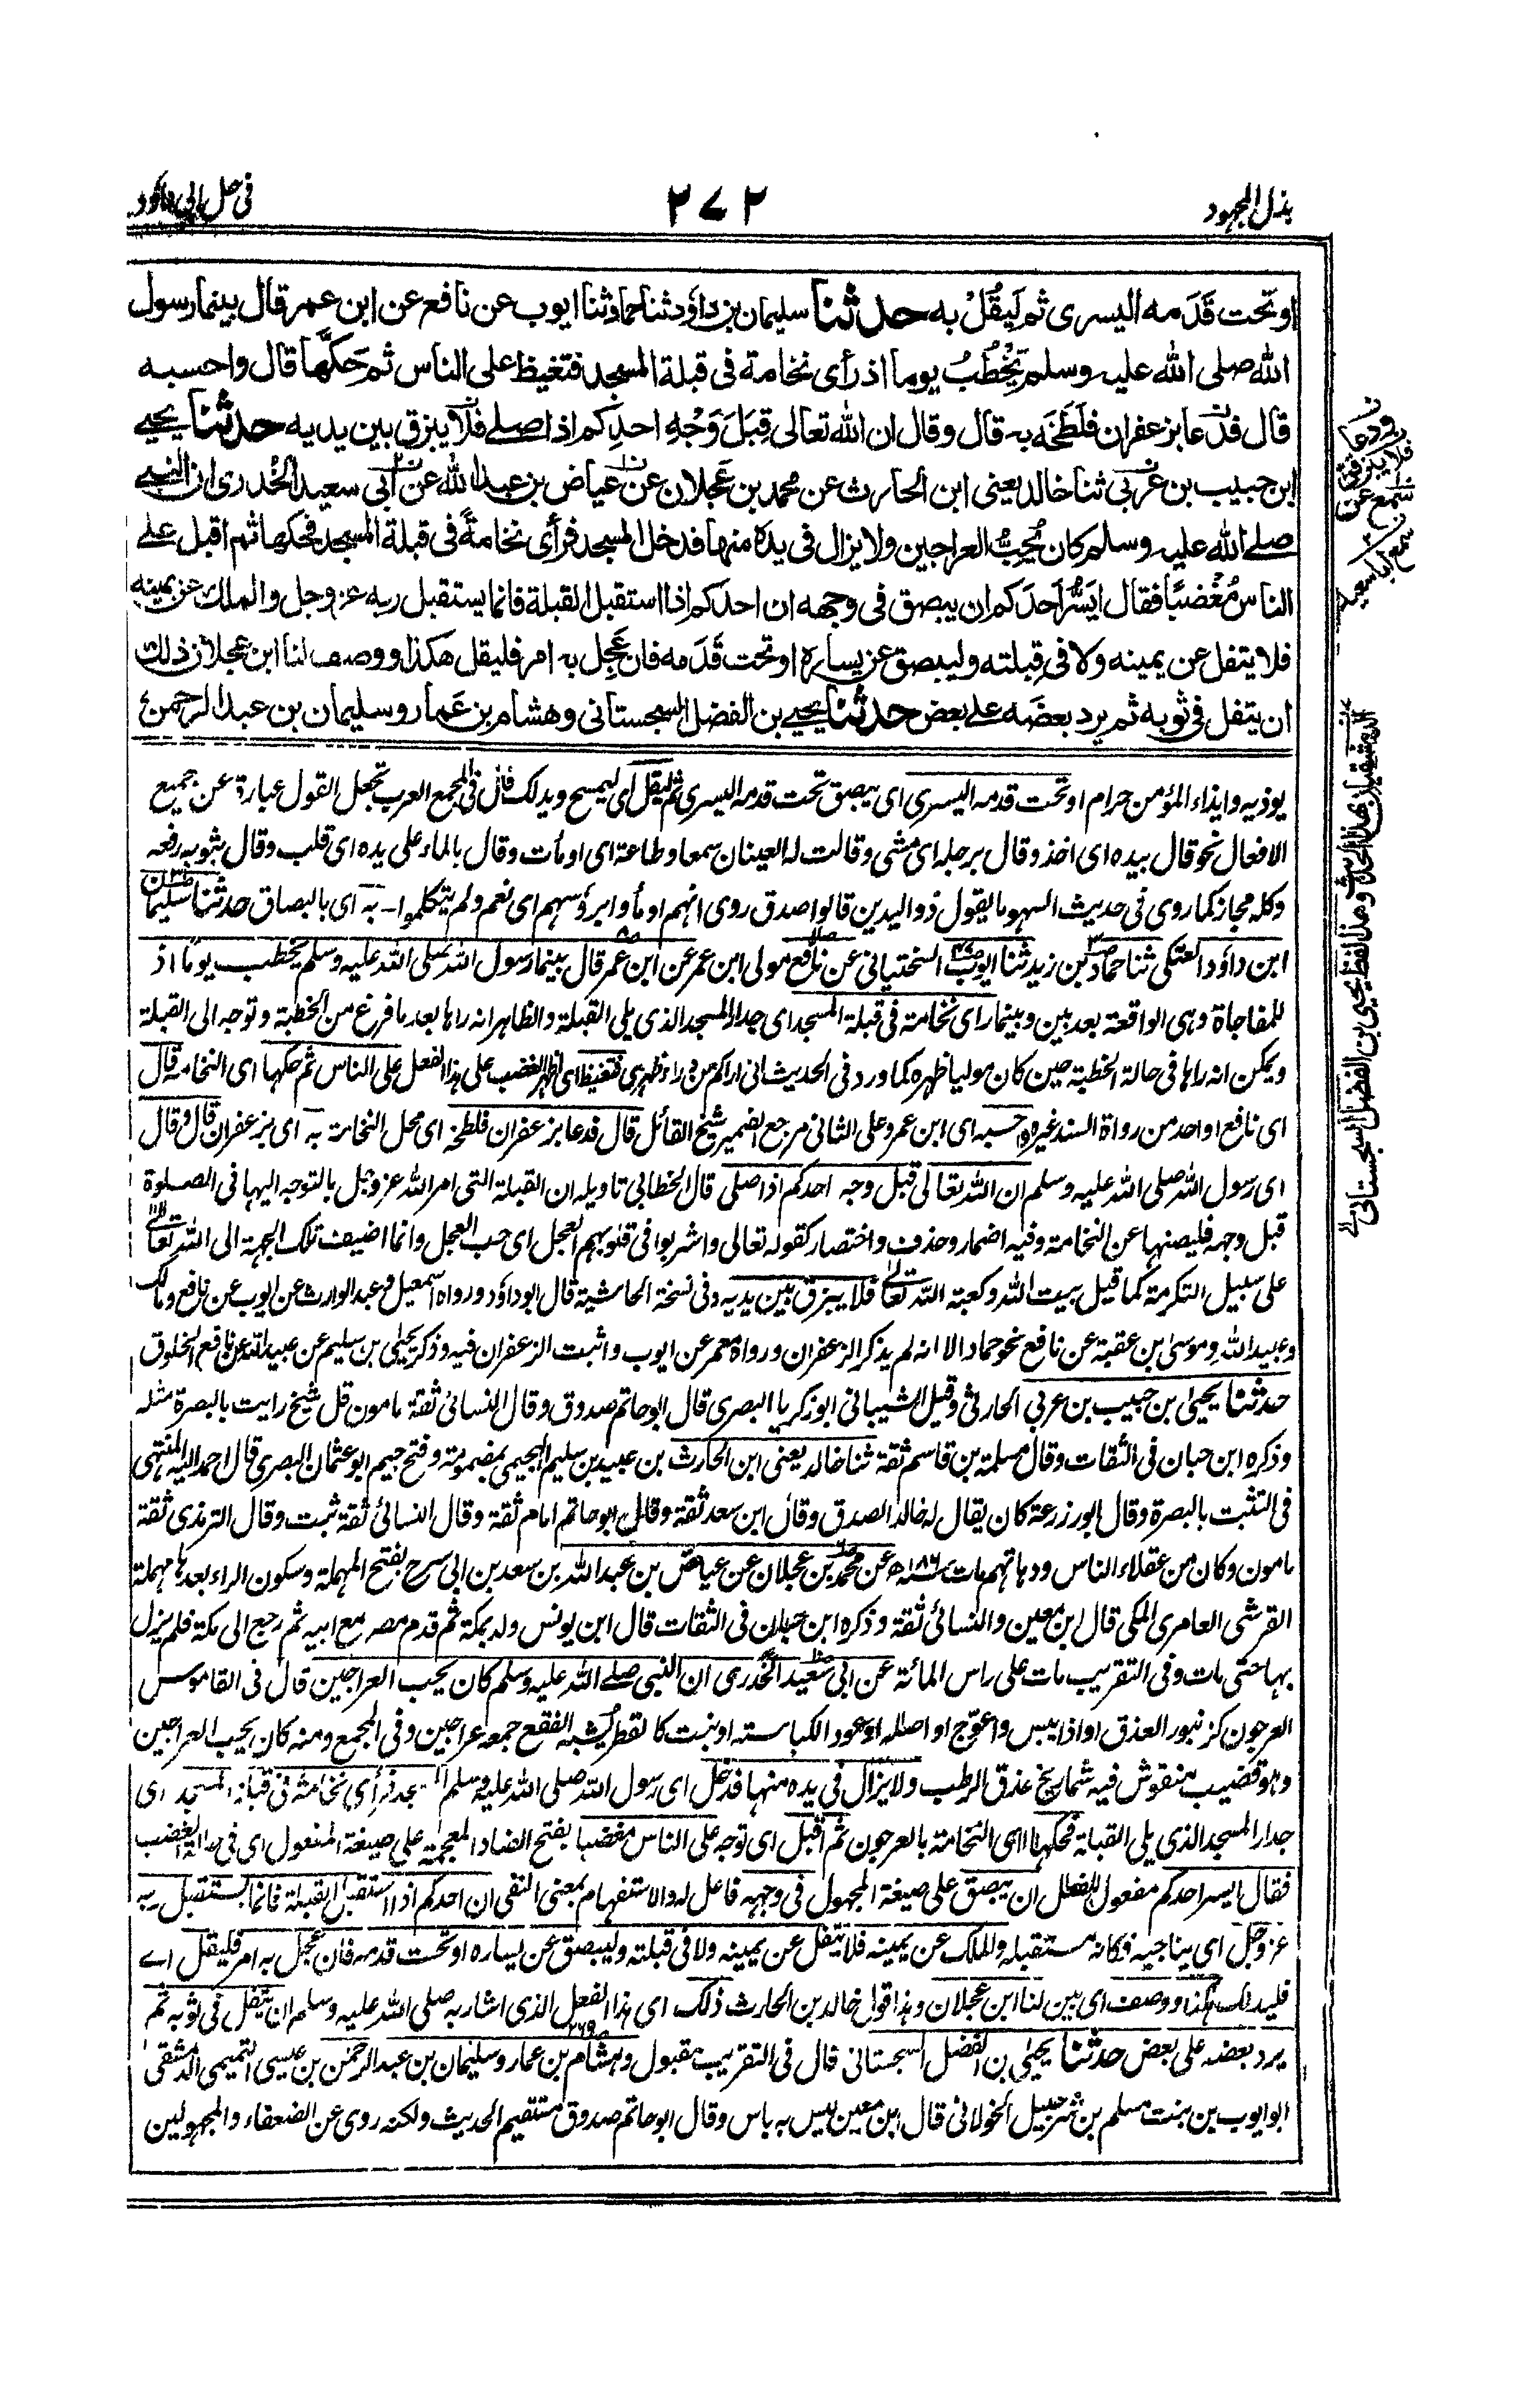 بذل المجهود
٢٧٢
فى حل ابى داؤد
او تحت قَدَمه اليسرى ثم لَيَقُلْ به حدثنا سليمان بن داؤد ثنا حماد ثنا ايوب عن نافع عن ابن عمر قال بينما رسول
الله صلى الله عليه وسلم يَخْطُبُ يوما اذ رأى نخامة فى قبلة المسجد فتغيظ على الناس ثم حَكَّها قال واحسبه
قال فدعا بزعفران فلَطَخَه به قال وقال ان الله تعالى قِبَلَ وَجْهِ احدِكم اذا صلے فلا يبزق بين يديه حدثنا يحيے
ابن حبيب بن عربى ثنا خالد يعنى ابن الحارث عن محمد بن عَجلان عن عياض بن عبد الله عن ابى سعيد الخُدرى ان النبے
صلے الله عليه وسلم كان يُحِبُّ العراجين ولا يزال فى يده منها فدخل المسجد فرأى نخامةً فى قبلة المسجد فحكها ثم اقبل علے
الناس مُغْضَبًا فقال ايَسُرُّ احدَكم ان يبصق فى وجهه ان احدكم اذا استقبل القبلة فانما يستقبل ربه عز وجل والملك عن يمينه
فلا يتفل عن يمينه ولا فى قِبلته وليبصق عن يساره او تحت قَدَمه فان عَجِل به امر فليقل هكذا ووصف لنا ابن عجلان ذلك
ان يتفل فى ثوبه ثم يرد بعضَه علے بعض حدثنا يحيے بن الفضل السجستانى وهشام بن عَمار وسليمان بن عبد الرحمن
يوذيه وايذاء المؤمن حرام او تحت قدمه اليسرى اى يبصق تحت قدمه اليسرى ثم ليقل اى ليمسح ويدلك قال فى المجمع العرب تجعل القول عبارة عن جميع
الافعال نحو قال بيده اى اخذ وقال برجله اى مشى وقالت له العينان سمعا وطاعة اى اومأت وقال بالماء على يده اى قلب وقال بثوبه رفعه
وكله مجاز كما روى فى حديث السهو ما يقول ذو اليدين قالوا صدق روى انهم اومأوا برؤسهم اى نعم ولم يتكلموا - به اى بالبصاق حدثنا سليمان
ابن داؤد العتكى ثنا حماد بن زيد ثنا ايوب السختيانى عن نافع مولى ابن عمر عن ابن عمر قال بينما رسول الله صلى الله عليه وسلم يخطب يوما اذ
للمفاجاة وهى الواقعة بعد بين وبينما راى نخامة فى قبلة المسجد اى جدار المسجد الذى يلى القبلة والظاهر انه راها بعد ما فرغ من الخطبة وتوجه الى القبلة
ويمكن انه راها فى حالة الخطبة حين كان موليا ظهره كما ورد فى الحديث انى اراكم من وراء ظهرى فتغيظ اى اظهر الغضب على هذا الفعل على الناس ثم حكها اى النخامة قال
اى نافع او احد من رواة السند غيره واحسبه اى ابن عمر وعلى الثانى مرجع الضمير شيخ القائل قال فدعا بزعفران فلطخه اى محل النخامة به اى بزعفران قال وقال
اى رسول الله صلى الله عليه وسلم ان الله تعالى قبل وجه احدكم اذا صلى قال الخطابى تاويله ان القبلة التى امر الله عز وجل بالتوجه اليها فى الصلوة
قبل وجهه فليصنها عن النخامة وفيه اضمار وحذف واختصار كقوله تعالى واشربوا فى قلوبهم العجل اى حب العجل وانما اضيفت تلك الجهة الى الله تعالى
على سبيل التكرمة كما قيل بيت الله وكعبة الله تعالى فلا يبزق بين يديه وفى نسخة الحاشية قال ابو داؤد ورواه اسمعيل وعبد الوارث عن ايوب عن نافع ومالك
وعبيد الله وموسى بن عقبة عن نافع نحو حماد الا انه لم يذكر الزعفران ورواه معمر عن ايوب واثبت الزعفران فيه وذكر يحيى بن سليم عن عبيد الله عن نافع الخلوق
حدثنا يحيى بن حبيب بن عربى الحارثى وقيل الشيبانى ابو زكريا البصرى قال ابو حاتم صدوق وقال النسائى ثقة مامون قل شيخ رايت بالبصرة مثله
وذكره ابن حبان فى الثقات وقال مسلمة بن قاسم ثقة ثنا خالد يعنى ابن الحارث بن عبيد بن سليم الهجيمى بمضمومة وفتح جيم ابو عثمان البصرى قال احمد اليه المنتهى
فى التثبت بالبصرة وقال ابو زرعة كان يقال له خالد الصدق وقال ابن سعد ثقة وقال ابو حاتم امام ثقة وقال النسائى ثقة ثبت وقال الترمذى ثقة
مامون وكان من عقلاء الناس ودهاتهم مات سنة ١٨٦ھ عن محمد بن عجلان عن عياض بن عبد الله بن سعد بن ابى سرح بفتح المهملة وسكون الراء بعدها مهملة
القرشى العامرى المكى قال ابن معين والنسائى ثقة وذكره ابن حبان فى الثقات قال ابن يونس ولد بمكة ثم قدم مصر مع ابيه ثم رجع الى مكة فلم يزل
بها حتى مات وفى التقريب مات على راس المائة عن ابى سعيد الخدرى ان النبى صلے الله عليه وسلم كان يحب العراجين قال فى القاموس
العرجون كزنبور العذق او اذا يبس واعوج او اصله او عود الكباسة او نبت كالفطر يشبه الفقع جمعه عراجين وفى المجمع ومنه كان يحب العراجين
وهو قضيب منقوش فيه شماريخ عذق الرطب ولا يزال فى يده منها فدخل اى رسول الله صلى الله عليه وسلم المسجد فرأى نخامة فى قبلة المسجد اى
جدار المسجد الذى يلى القبلة فحكها اى النخامة بالعرجون ثم اقبل اى توجه على الناس مغضبا بفتح الضاد المعجمة على صيغة المفعول اى فى حالة الغضب
فقال ايسر احدكم مفعول للفعل ان يبصق على صيغة المجهول فى وجهه فاعل له والاستفهام بمعنى النفى ان احدكم اذا استقبل القبلة فانما يستقبل ربه
عز وجل اى يناجيه فكانه مستقبله والملك عن يمينه فلا يتفل عن يمينه ولا فى قبلته وليبصق عن يساره او تحت قدمه فان عجل به امر فليقل اے
فليدلك هكذا ووصف اى بين لنا ابن عجلان وهذا قول خالد بن الحارث ذلك اى هذا الفعل الذى اشار به صلى الله عليه وسلم ان يتفل فى ثوبه ثم
يرد بعضه على بعض حدثنا يحيى بن الفضل السجستانى قال فى التقريب مقبول وهشام بن عمار وسليمان بن عبد الرحمن بن عيسى التميمى الدمشقى
ابو ايوب بن بنت مسلم بن شرحبيل الخولانى قال ابن معين ليس به باس وقال ابو حاتم صدوق مستقيم الحديث ولكنه روى عن الضعفاء والمجهولين
ودعا
فلا يبزقن
سمع عن
سمع ابا سعيد
الدمشقيان بهذا الحديث وهذا لفظ يحيى بن الفضل السجستانى